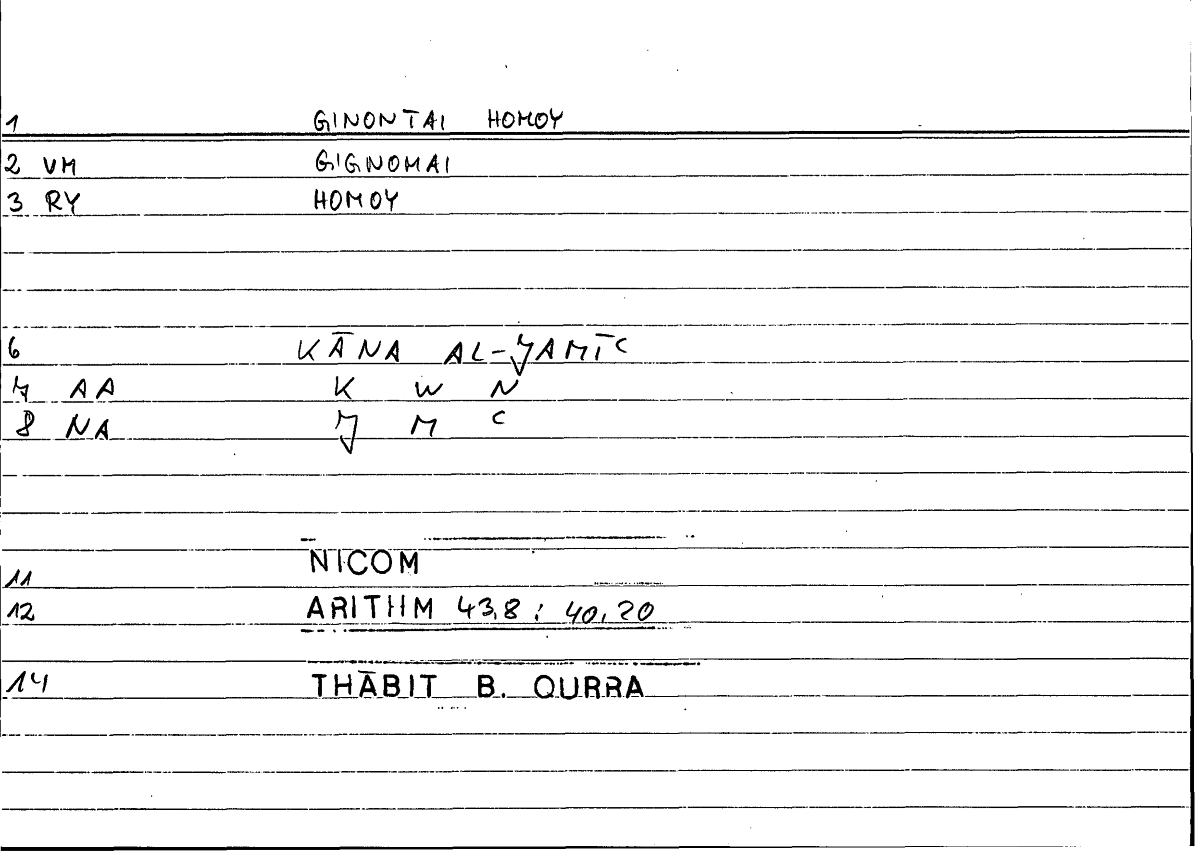 1 GINONTAI HOMOY
2 VM GIGNOMAI
3 RY HOMOY
6 KĀNA AL-J̌AMĪC
7 AA K W N
8 NA J̌ M C
11 NICOM
12 ARITHM 43,8 ; 40,20
14 THĀBIT B. QURRA